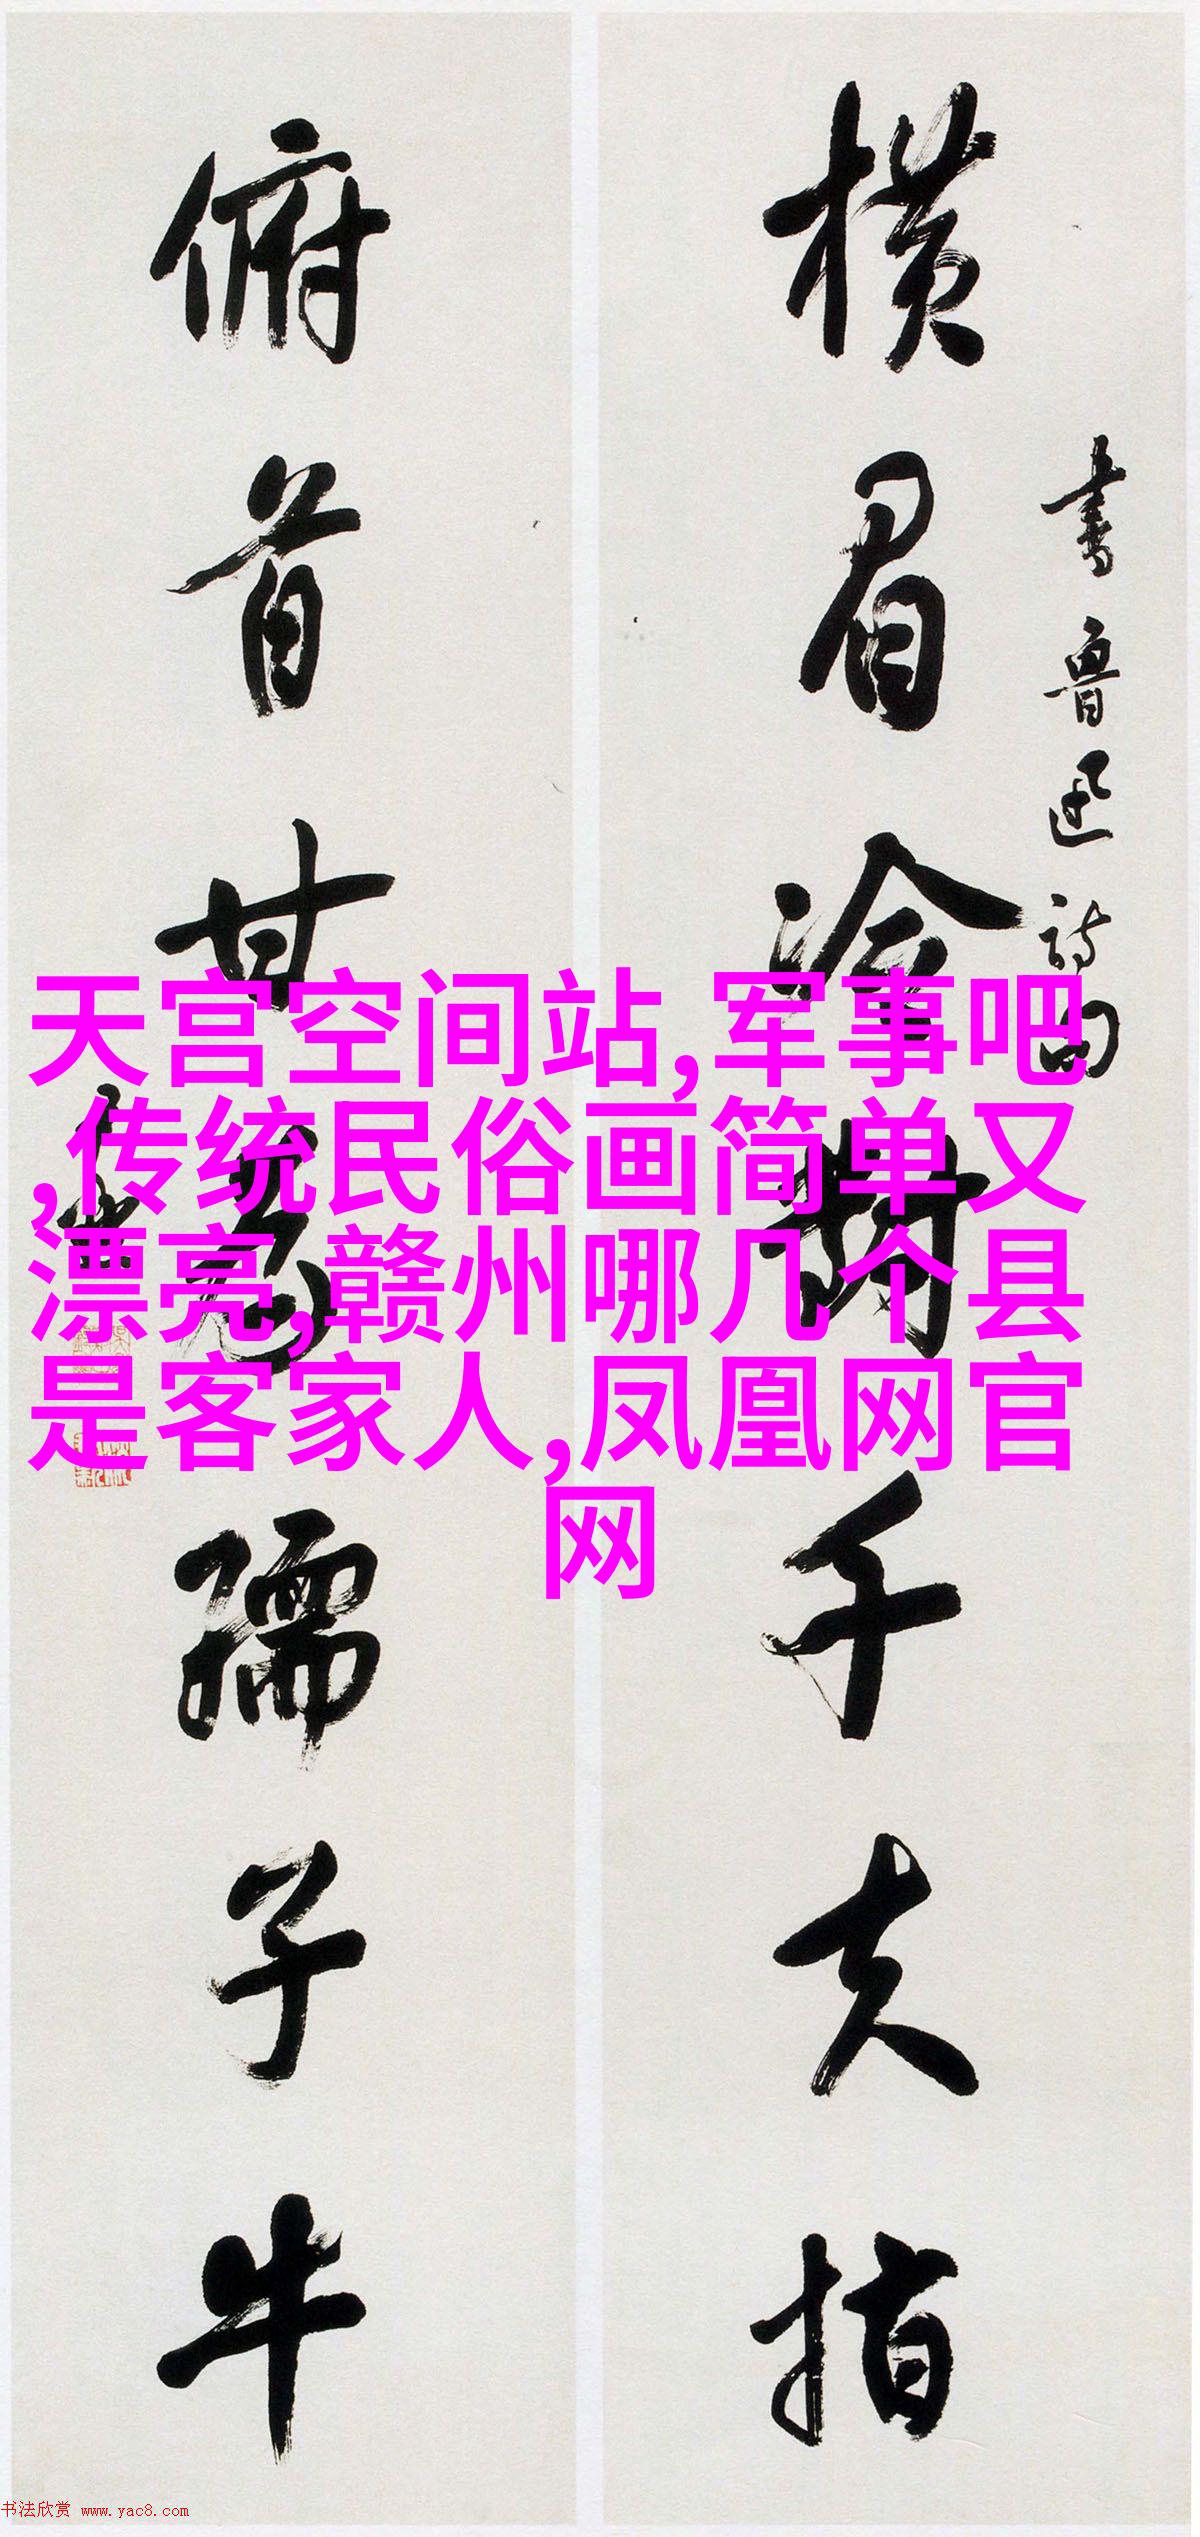 横眉冷对千夫指
书鲁迅诗句
俯首甘为孺子牛
天宫空间站,军事吧
,传统民俗画简单又
漂亮,赣州哪几个县
是客家人,凤凰网官
网
书法欣赏 www.yac8.com